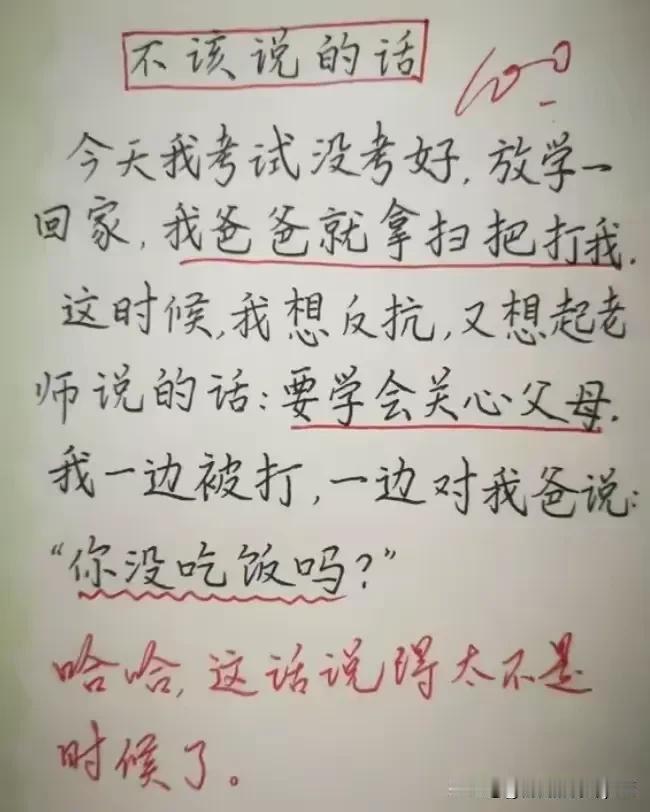 不该说的话
100
今天我考试没考好,放学一
回家,我爸爸就拿扫把打我.
这时候,我想反抗,又想起老
师说的话:要学会关心父母.
我一边被打,一边对我爸说:
“你没吃饭吗?”
哈哈,这话说得太不是
时候了。